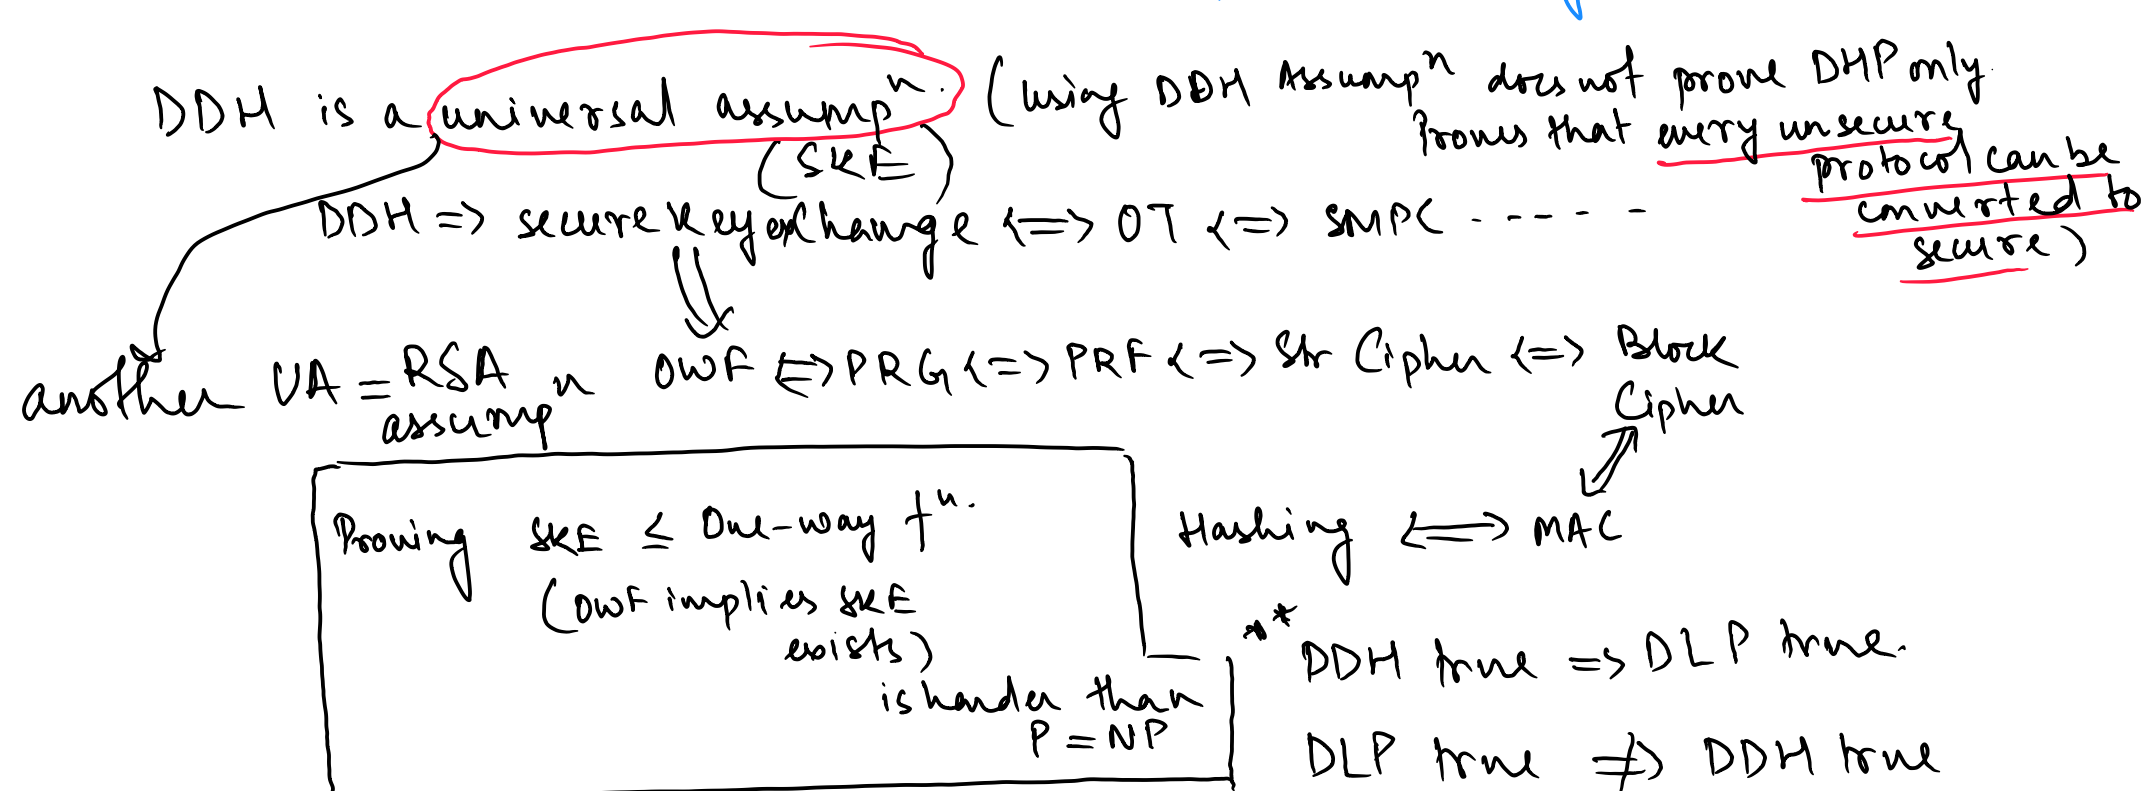 DDH is a universal assumpⁿ. (using DDH Assumpⁿ does not prove DHP only.
Proves that every unsecure
protocol can be
converted to
secure)
(SKE)
DDH => secure key exchange <=> OT <=> SMPC - - - - -
another UA = RSA assumpⁿ
OWF <=> PRG <=> PRF <=> Str Cipher <=> Block
Cipher
Proving SKE ≤ One-way fⁿ.
(OWF implies SKE
exists)
is harder than
P = NP
Hashing <=> MAC
** DDH true => DLP true.
DLP true ≠> DDH true